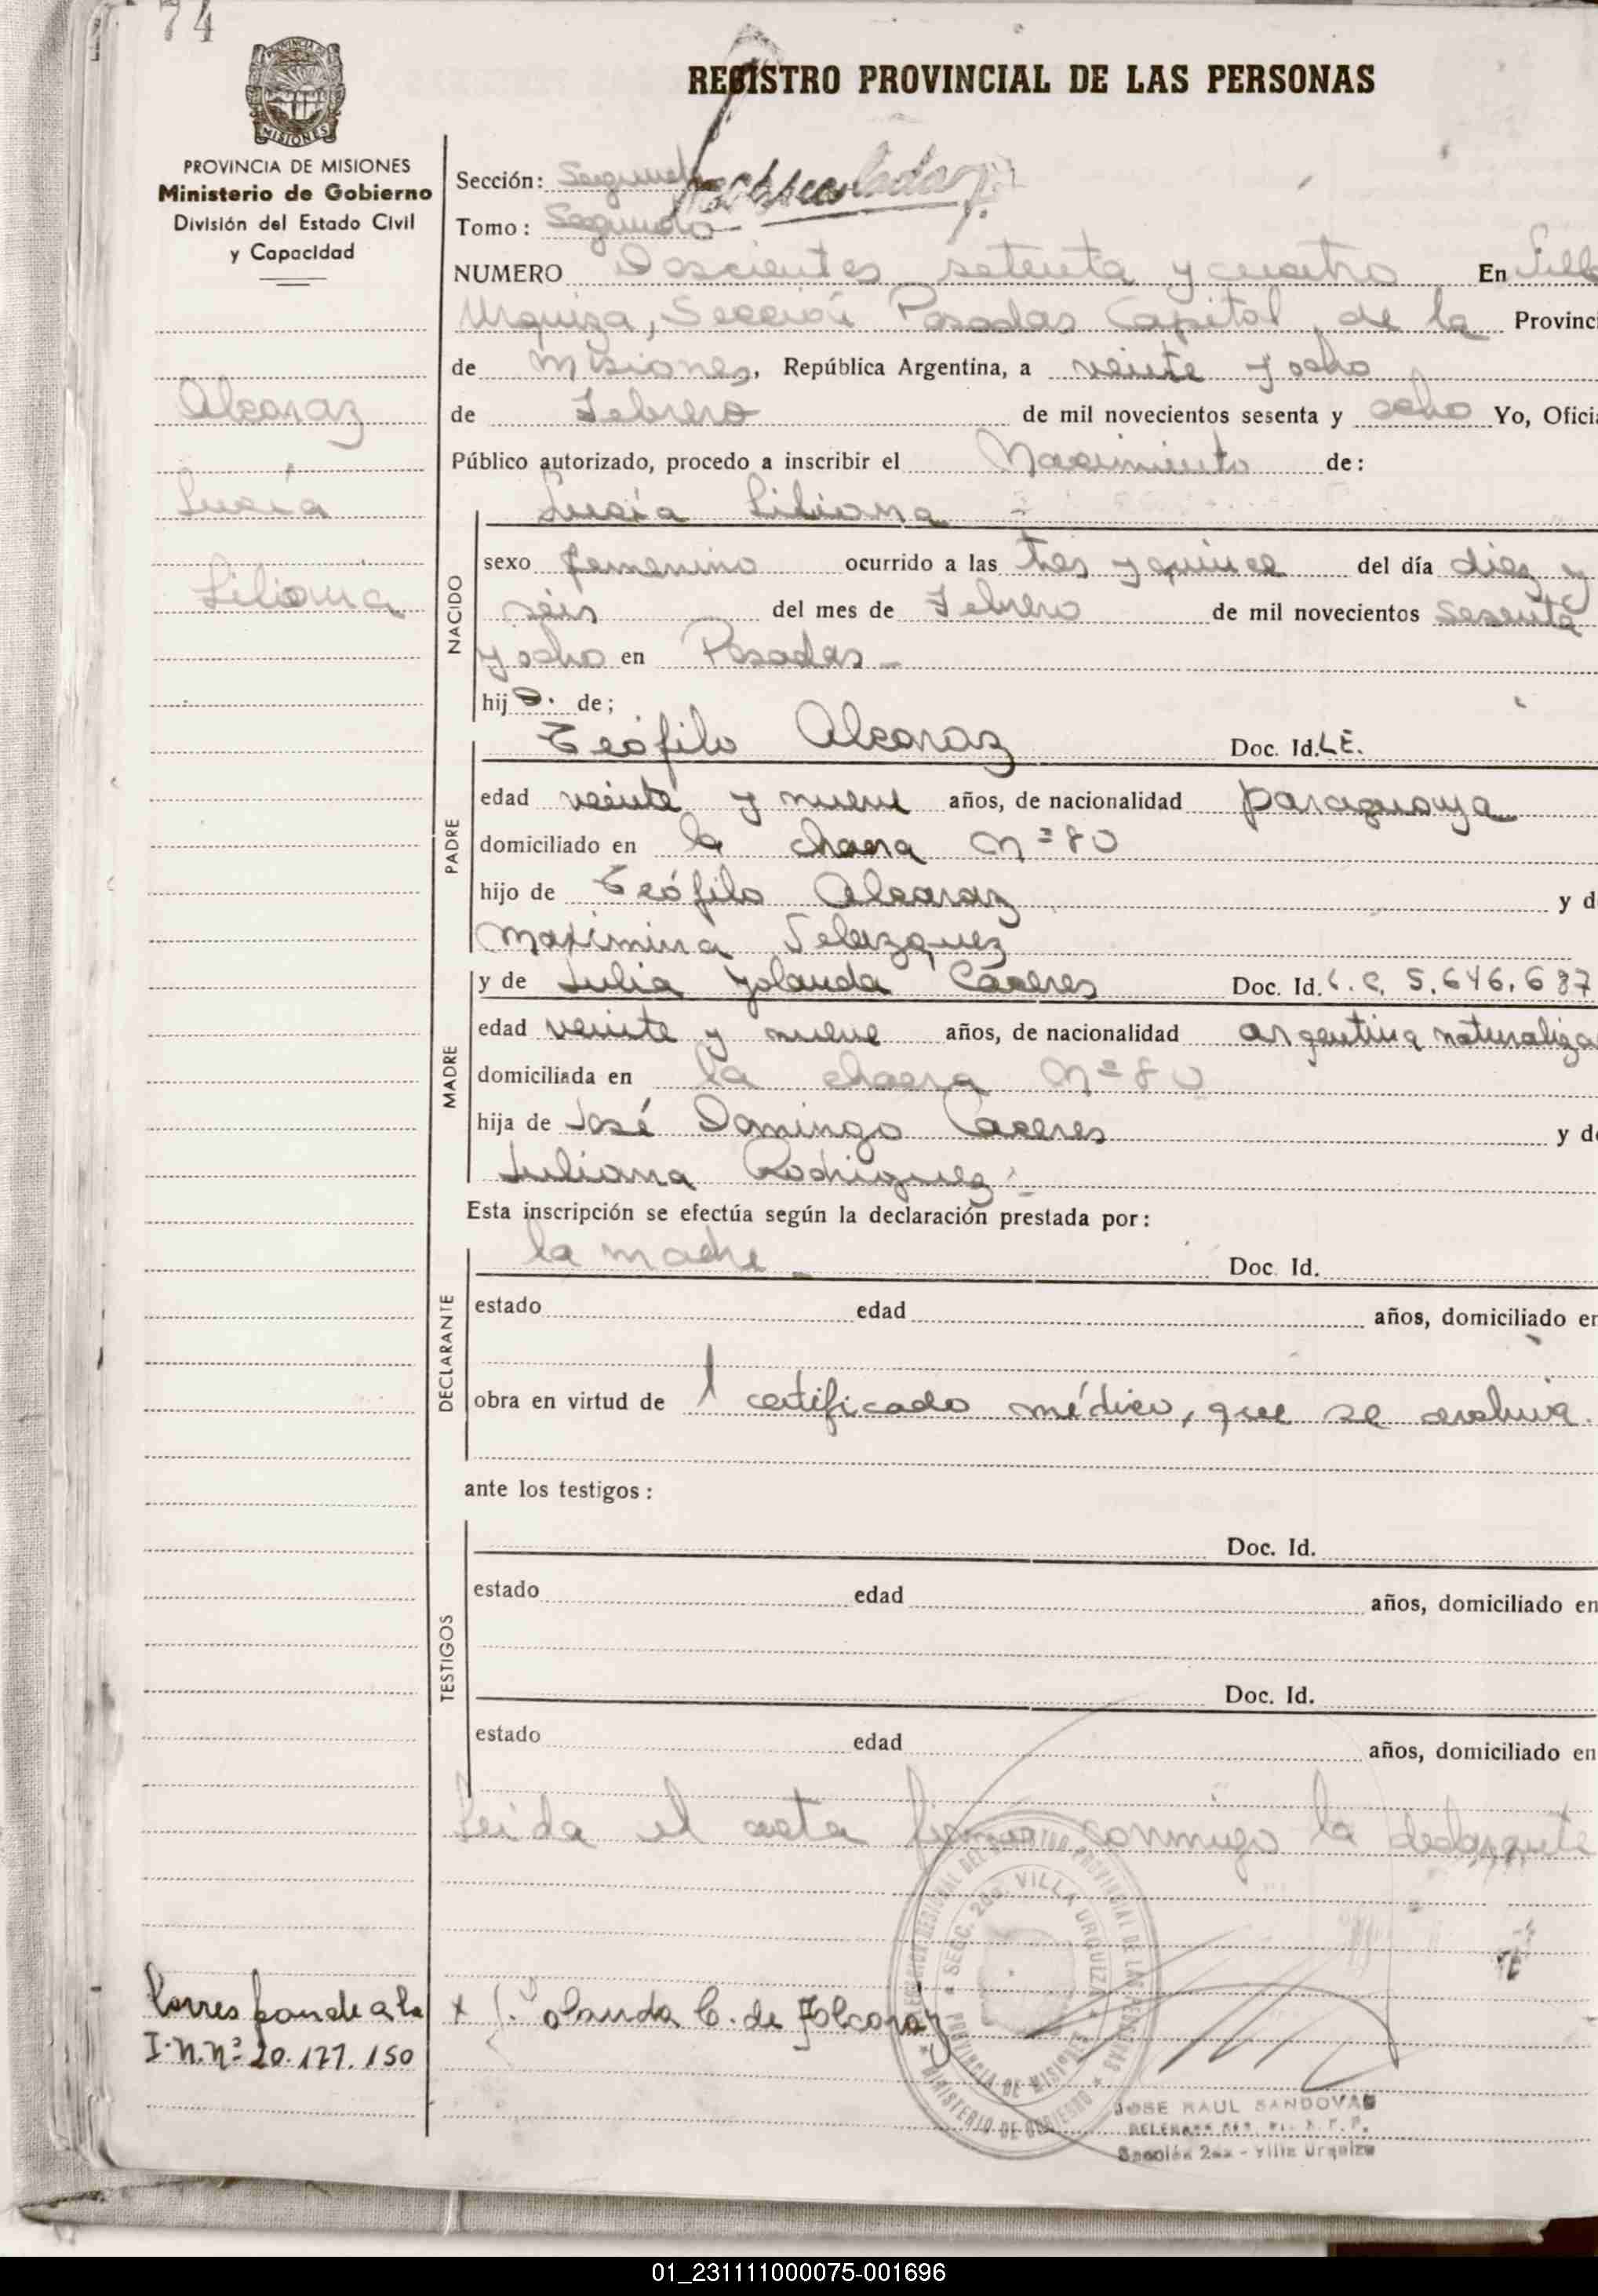 74
REGISTRO PROVINCIAL DE LAS PERSONAS
MISIONES
PROVINCIA DE MISIONES
Ministerio de Gobierno
División del Estado Civil
y Capacidad
Sección: Segunda
Tomo: Segundo
NUMERO Doscientos setenta y cuatro En Villa
Urquiza, Sección Posadas Capital, de la Provinci
de Misiones, República Argentina, a veinte y ocho
de Febrero de mil novecientos sesenta y ocho Yo, Ofici
Público autorizado, procedo a inscribir el Nacimiento de:
Alcaraz
Lucía
Liliana
Lucía Liliana
NACIDO
sexo femenino ocurrido a las tres y quince del día diez y
seis del mes de Febrero de mil novecientos sesenta
y ocho en Posadas
hij a. de;
PADRE
Teófilo Alcaraz Doc. Id. L.E.
edad veinte y nueve años, de nacionalidad paraguaya
domiciliado en la chacra Nº 80
hijo de Teófilo Alcaraz y d
Maximina Velazquez
MADRE
y de Julia Yolanda Cáceres Doc. Id. L.C. 5.646.687
edad veinte y nueve años, de nacionalidad argentina naturaliza
domiciliada en la chacra Nº 80
hija de José Domingo Caceres y d
Juliana Rodriguez
Esta inscripción se efectúa según la declaración prestada por:
DECLARANTE
la madre Doc. Id.
estado edad años, domiciliado en
obra en virtud de 1 certificado médico, que se archiva.
ante los testigos:
TESTIGOS
Doc. Id.
estado edad años, domiciliado en
Doc. Id.
estado edad años, domiciliado en
Leida el acta firma conmigo la declarante
DEL REGISTRO PROVINCIAL DE LAS PERSONAS
SECC. 2da. VILLA URQUIZA
PROVINCIA DE MISIONES
MINISTERIO DE GOBIERNO
Corresponde a la
I.N.Nº 20.177.150
x J. Yolanda C. de Alcaraz
JOSE RAUL SANDOVAL
Sección 2da - Villa Urquiza
01_231111000075-001696